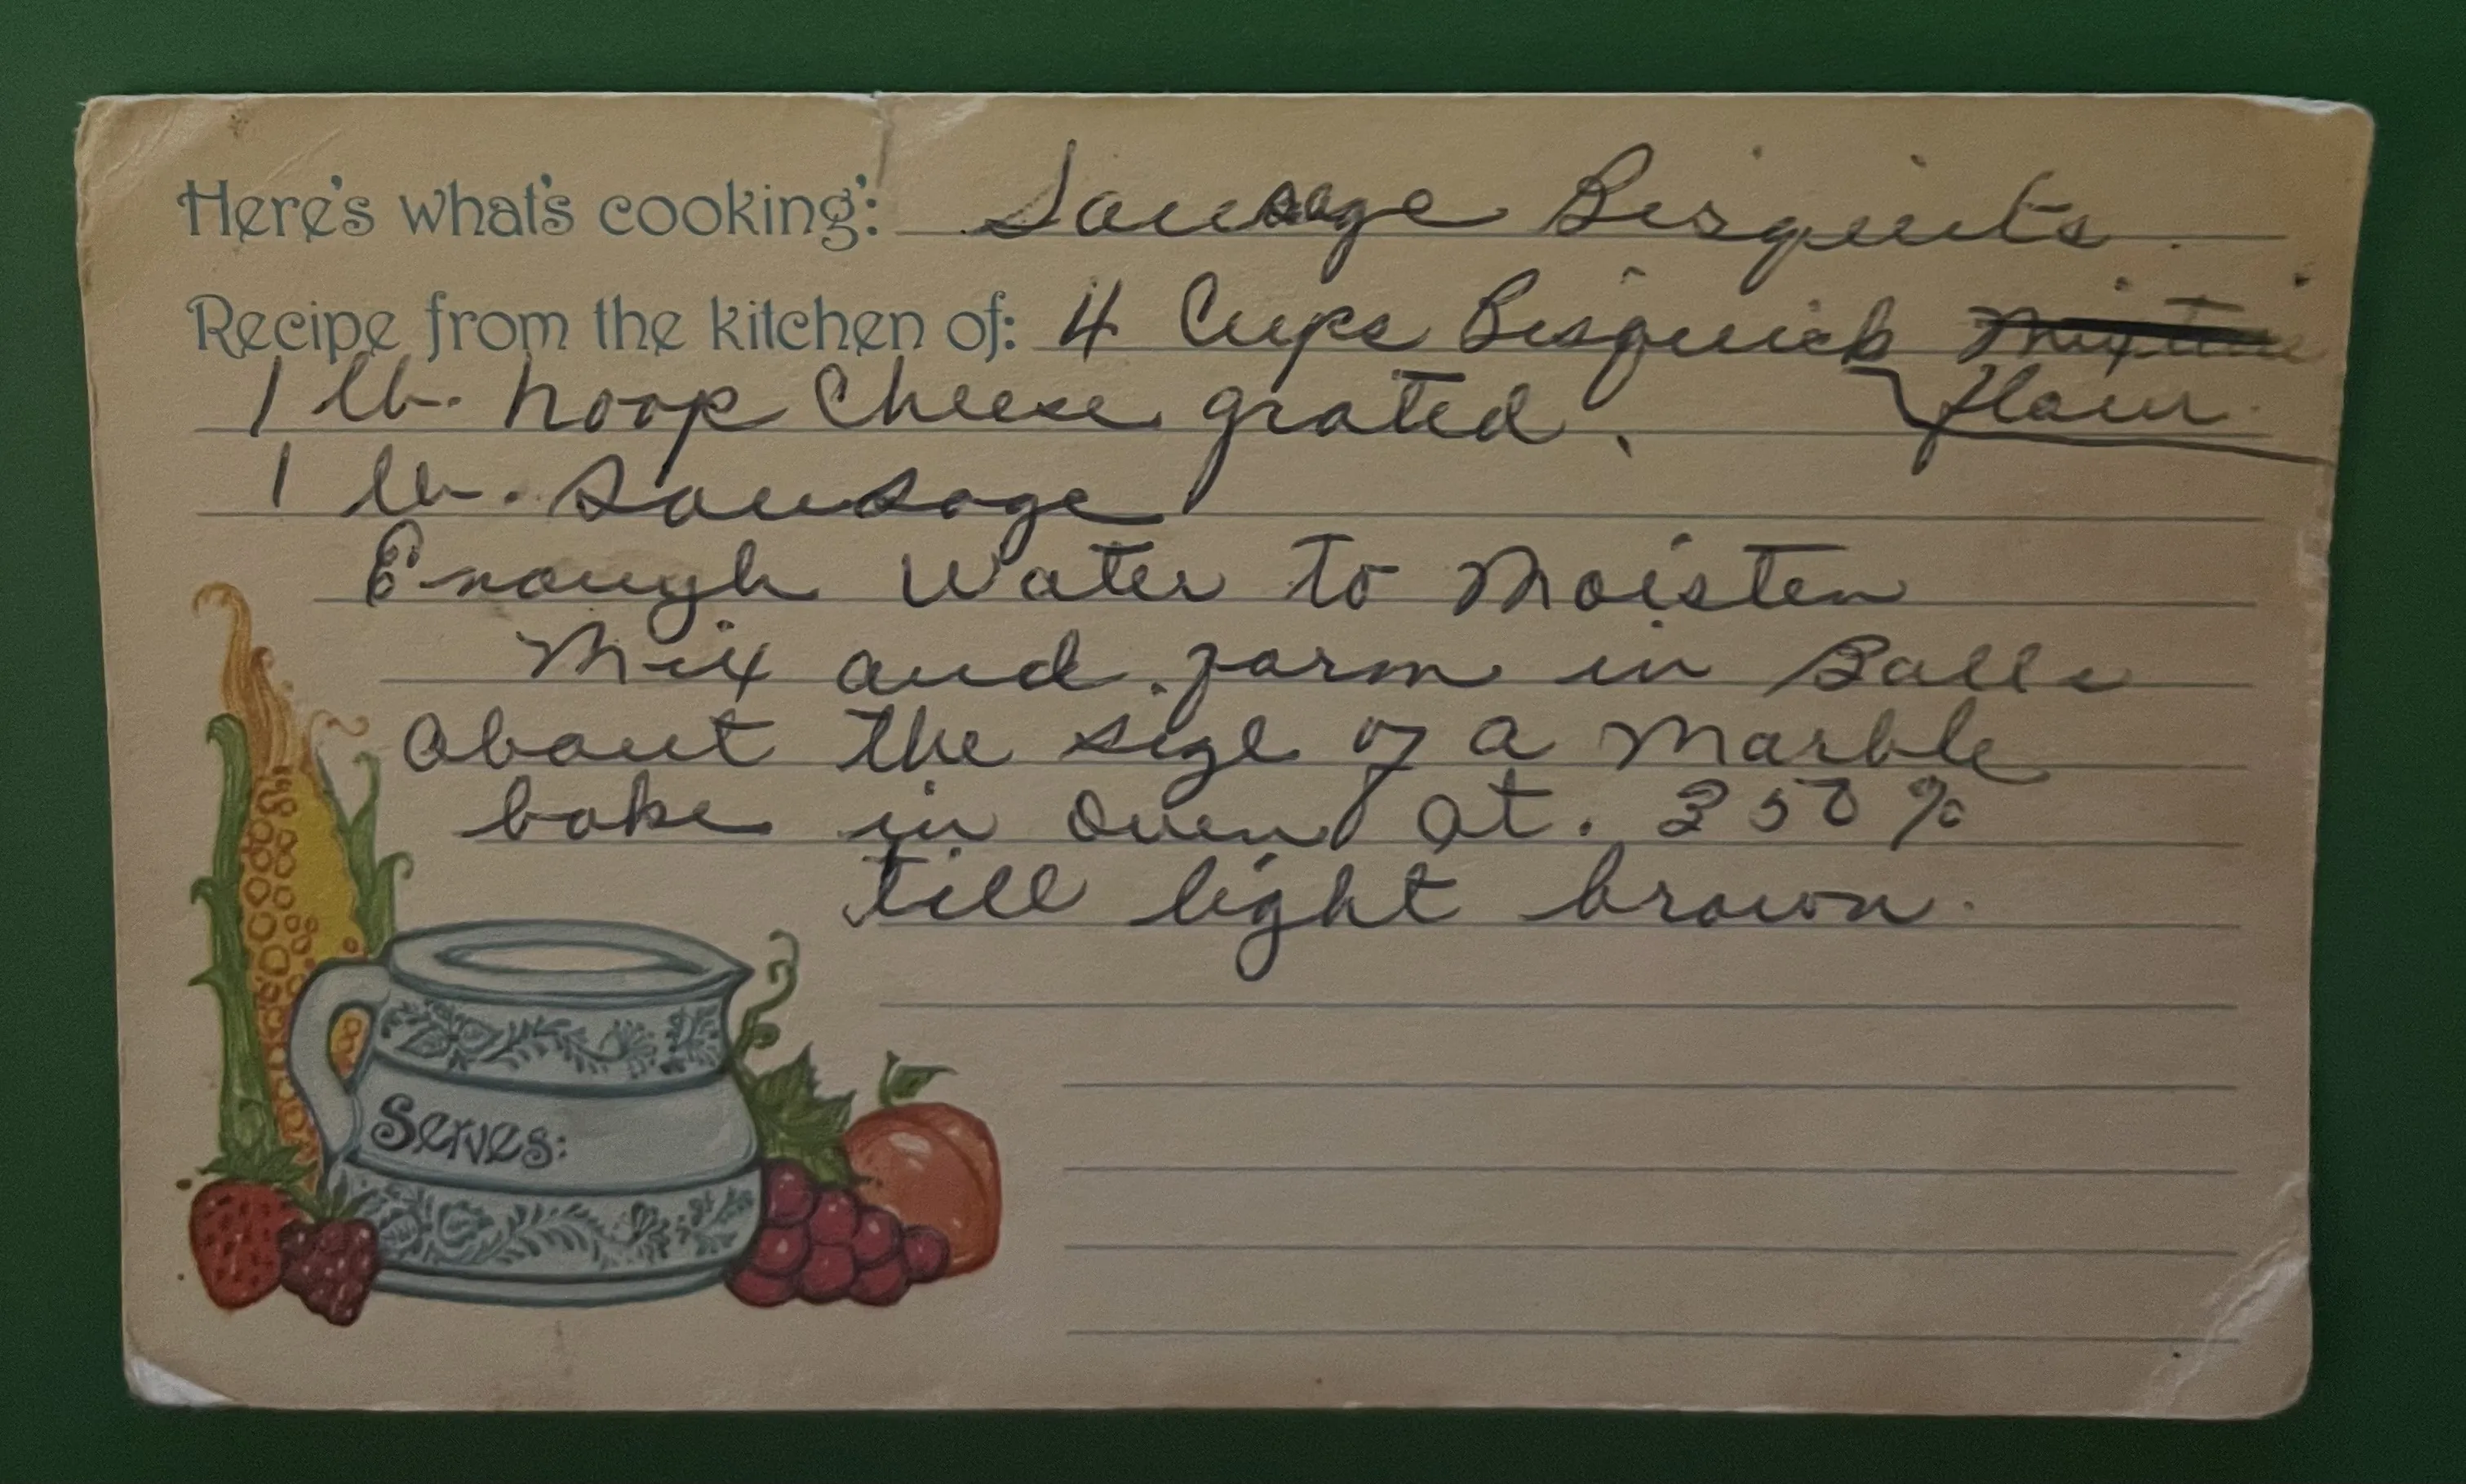 Here's what's cooking: Sausage Bisquits.
Recipe from the kitchen of: 4 Cups Bisquick Mixture
1 lb. hoop Cheese grated. flour.
1 lb. Sausage
Enough Water to Moisten
Mix and form in Balls
about the size of a Marble
bake in oven at. 350%
till light brown.
Serves: